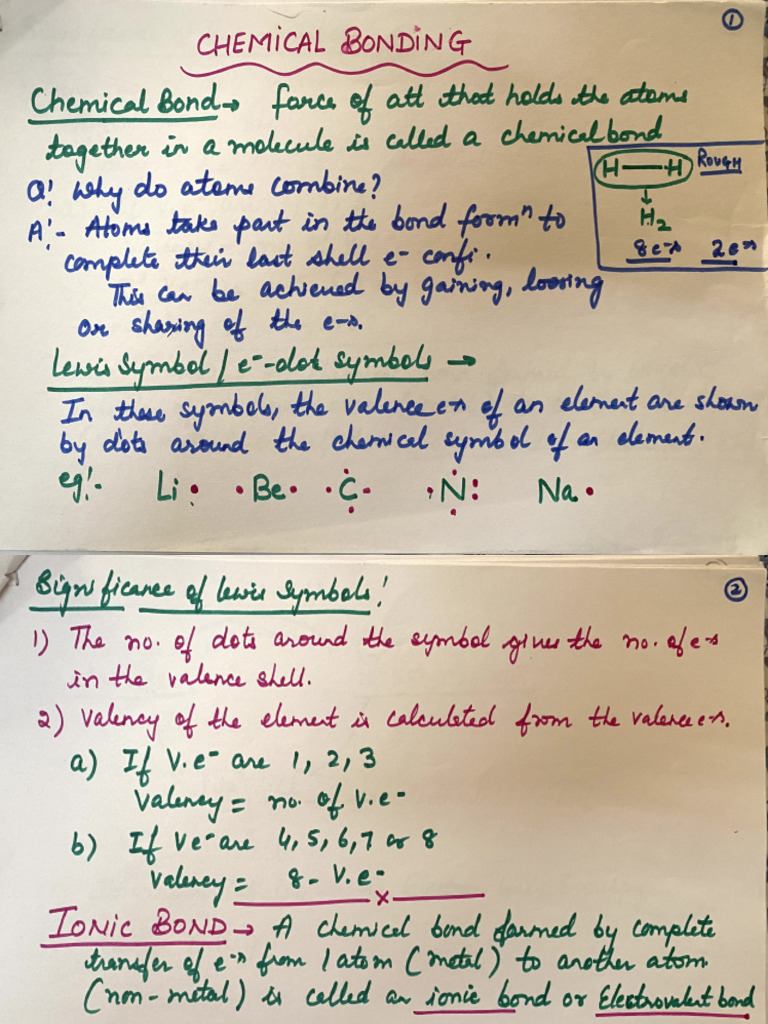 ①
CHEMICAL BONDING
Chemical Bond → force of att that holds the atoms
together in a molecule is called a chemical bond
H — H ROUGH
↓
H₂
8e⁻s 2e⁻s
Q:- Why do atoms combine?
A:- Atoms take part in the bond formⁿ to
complete their last shell e- confi.
This can be achieved by gaining, loosing
or sharing of the e-s.
Lewis Symbol / e⁻-dot symbols →
In these symbols, the valence e-s of an element are shown
by dots around the chemical symbol of an element.
eg:- Li• •Be• •C• •N: Na•
②
Significance of lewis symbols:
1) The no. of dots around the symbol gives the no. of e-s
in the valence shell.
2) Valency of the element is calculated from the valence e-s.
a) If V.e⁻ are 1, 2, 3
Valency = no. of V.e-
b) If Ve⁻ are 4, 5, 6, 7 or 8
Valency = 8 - V.e-
x
IONIC BOND → A chemical bond formed by complete
transfer of e-s from 1 atom (metal) to another atom
(non-metal) is called an ionic bond or Electrovalent bond